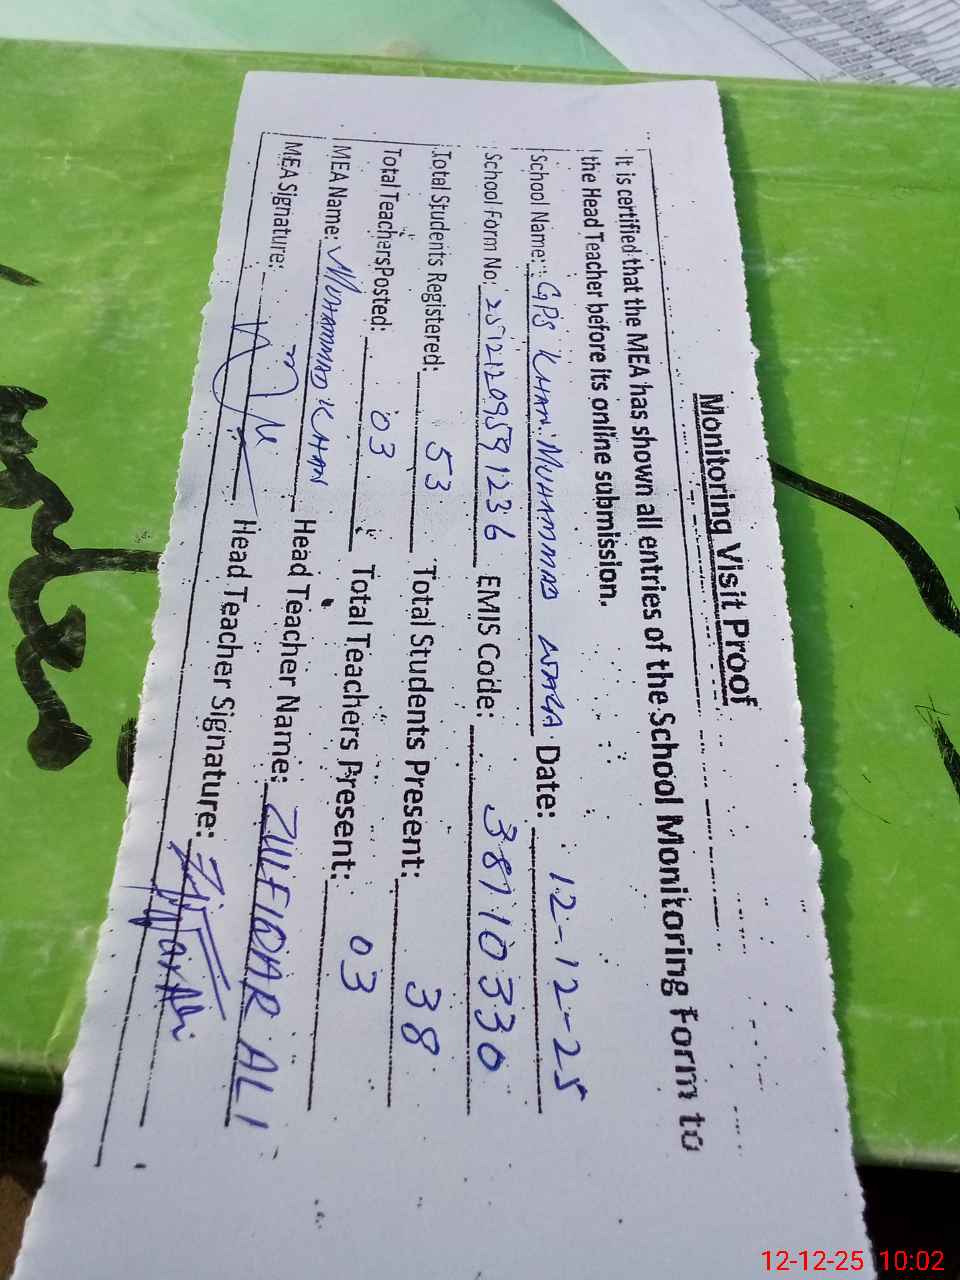 Monitoring Visit Proof
It is certified that the MEA has shown all entries of the School Monitoring Form to
the Head Teacher before its online submission.
School Name: GPS KHAN MUHAMMAD WALA Date: 12-12-25
School Form No: 25121209591236 EMIS Code: 38710330
Total Students Registered: 53 Total Students Present: 38
Total Teachers Posted: 03 Total Teachers Present: 03
MEA Name: MUHAMMAD KHAN Head Teacher Name: ZULFIQAR ALI
MEA Signature: Head Teacher Signature:
12-12-25 10:02